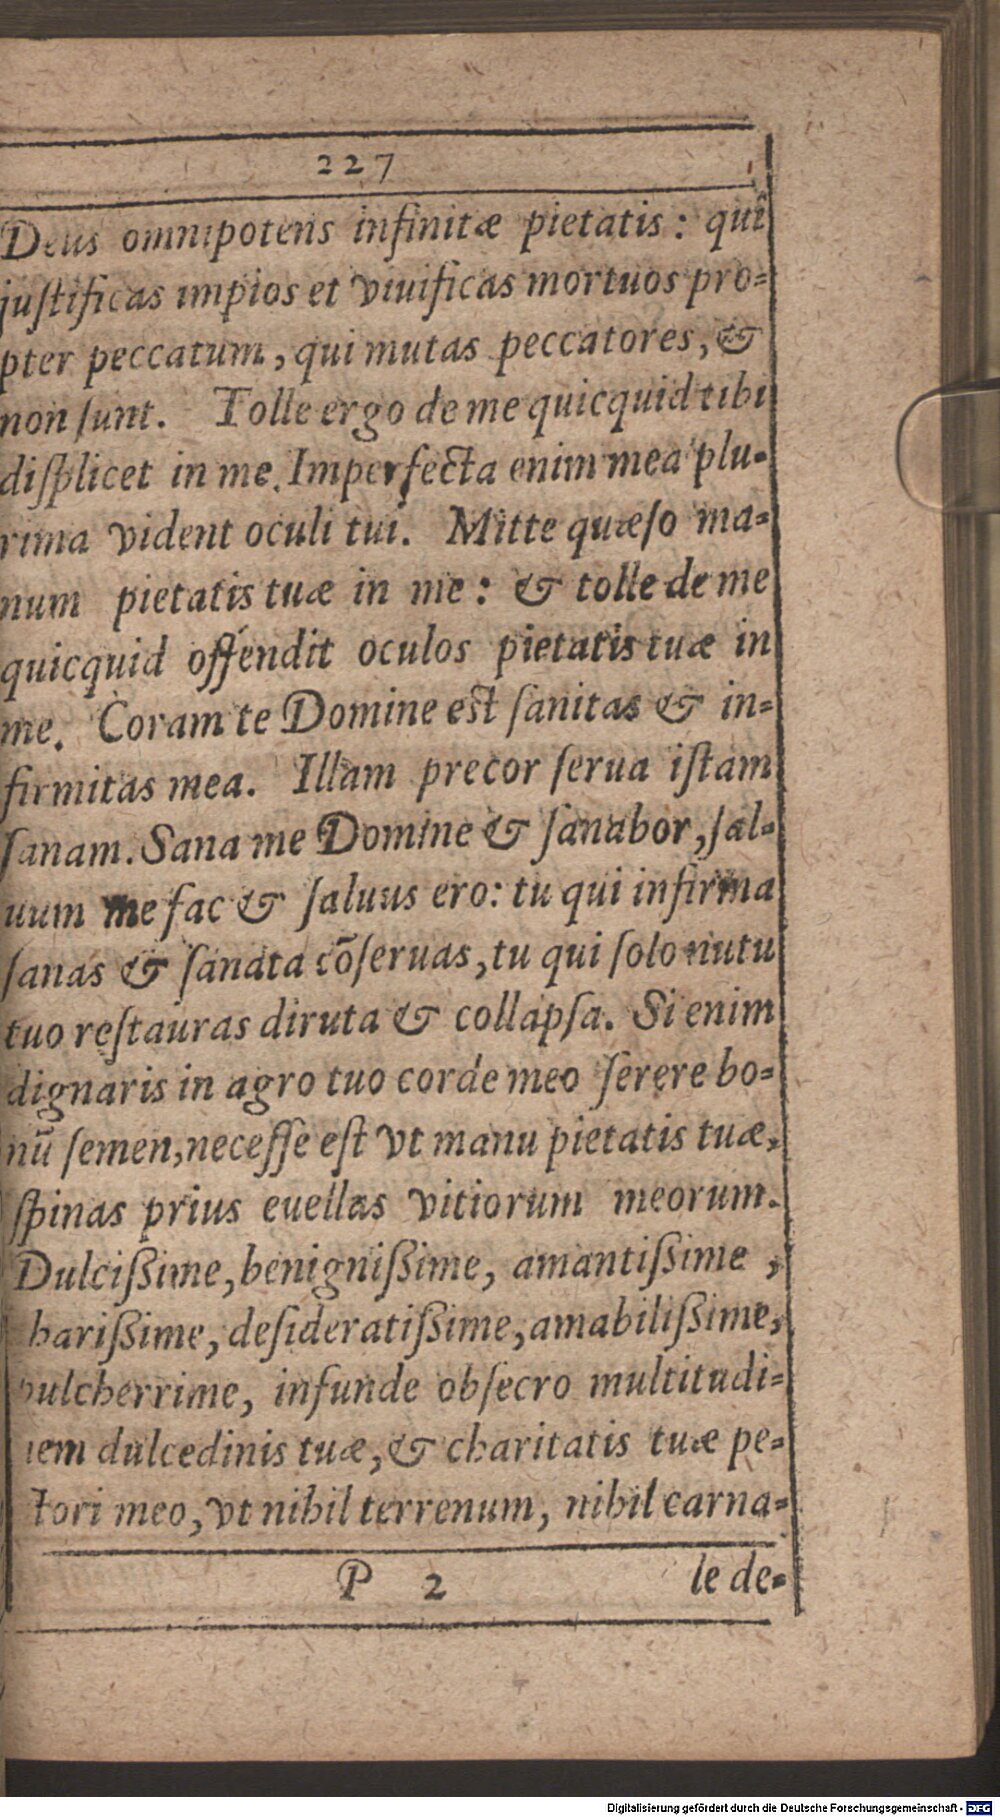 227
Deus omnipotens infinitæ pietatis: qui
juſtificas impios et viuificas mortuos pro-
pter peccatum, qui mutas peccatores, &
non ſunt. Tolle ergo de me quicquid tibi
diſplicet in me. Imperfecta enim mea plu-
rima vident oculi tui. Mitte quæſo ma-
num pietatis tuæ in me: & tolle de me
quicquid offendit oculos pietatis tuæ in
me. Coram te Domine eſt ſanitas & in-
firmitas mea. Illam precor ſerua iſtam
ſanam. Sana me Domine & ſanabor, ſal-
uum me fac & ſaluus ero: tu qui infirma
ſanas & ſanata cōſeruas, tu qui ſolo nutu
tuo reſtauras diruta & collapſa. Si enim
dignaris in agro tuo corde meo ſerere bo-
nū ſemen, neceſſe eſt vt manu pietatis tuæ,
ſpinas prius euellas vitiorum meorum.
Dulciſſime, benigniſſime, amantiſſime,
hariſſime, deſideratiſſime, amabiliſſime,
pulcherrime, infunde obſecro multitudi-
nem dulcedinis tuæ, & charitatis tuæ pe-
ctori meo, vt nihil terrenum, nihil carna-
P 2 le de-
Digitalisierung gefördert durch die Deutsche Forschungsgemeinschaft - DFG